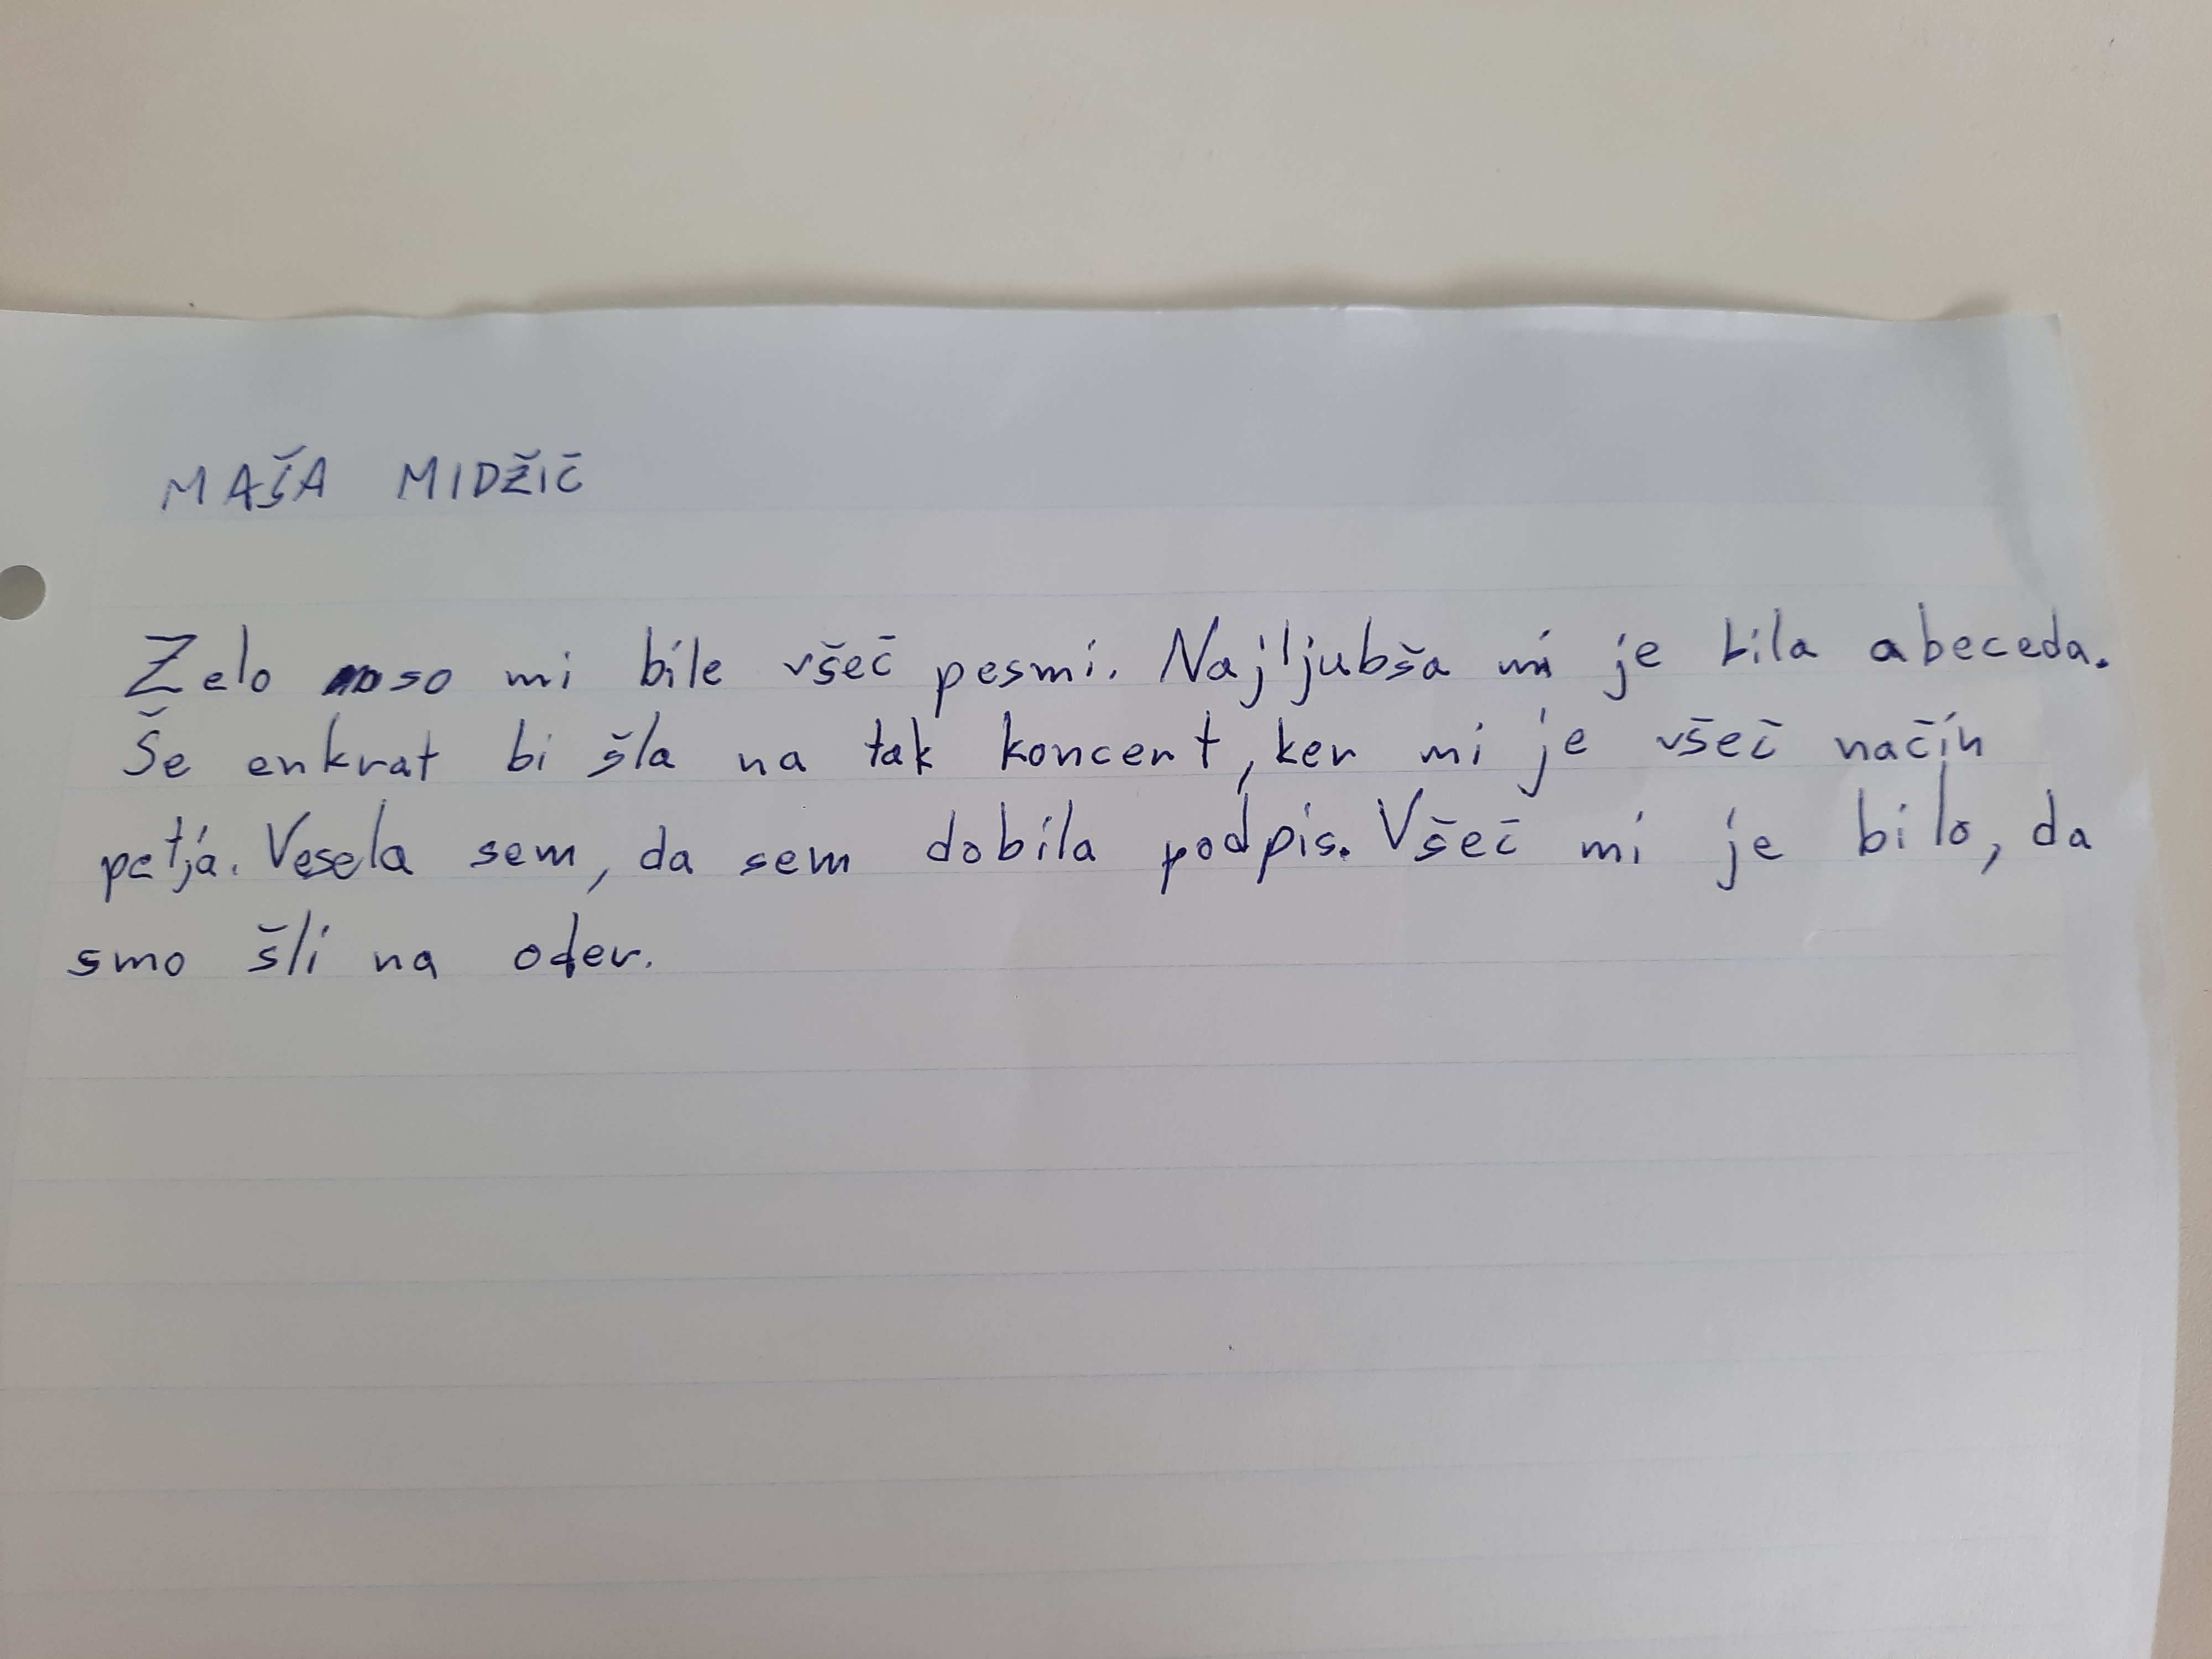 MAŠA MIDŽIČ
Zelo so mi bile všeč pesmi. Najljubša mi je bila abeceda.
Še enkrat bi šla na tak koncert, ker mi je všeč način
petja. Vesela sem, da sem dobila podpis. Všeč mi je bilo, da
smo šli na oder.